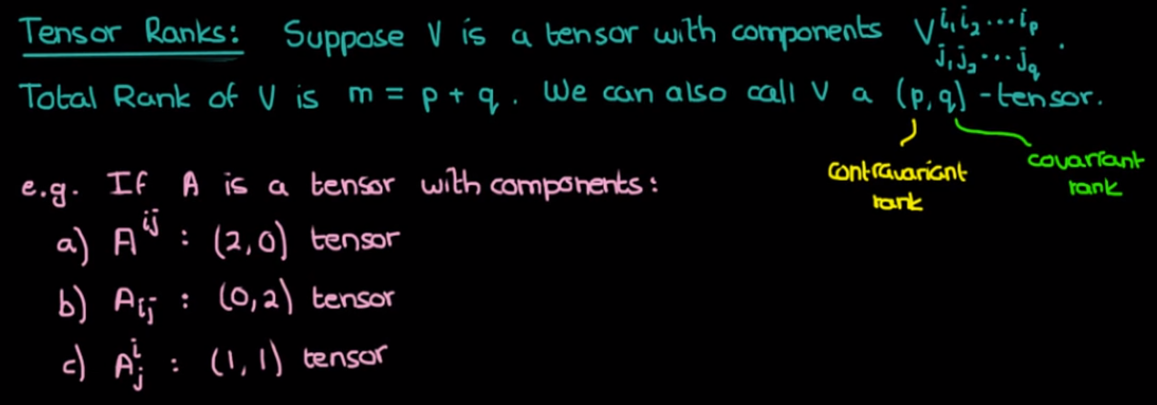 Tensor Ranks: Suppose V is a tensor with components V^{i₁i₂⋯iₚ}_{j₁j₂⋯j_q}.
Total Rank of V is m = p + q. We can also call V a (p,q)-tensor.
contravariant rank
covariant rank
e.g. If A is a tensor with components:
a) A^{ij} : (2,0) tensor
b) A_{ij} : (0,2) tensor
c) A^{i}_{j} : (1,1) tensor